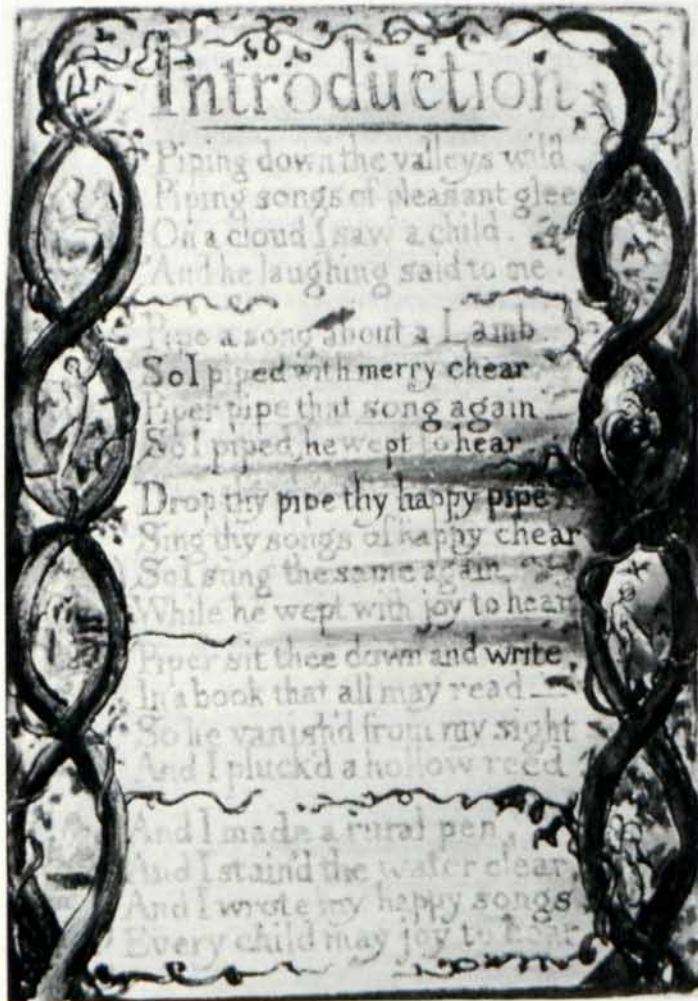 Introduction
Piping down the valleys wild
Piping songs of pleasant glee
On a cloud I saw a child.
And he laughing said to me.
Pipe a song about a Lamb.
So I piped with merry chear
Piper pipe that song again
So I piped, he wept to hear
Drop thy pipe thy happy pipe
Sing thy songs of happy chear
So I sung the same again
While he wept with joy to hear
Piper sit thee down and write
In a book that all may read
So he vanish'd from my sight
And I pluck'd a hollow reed
And I made a rural pen,
And I stain'd the water clear,
And I wrote my happy songs
Every child may joy to hear